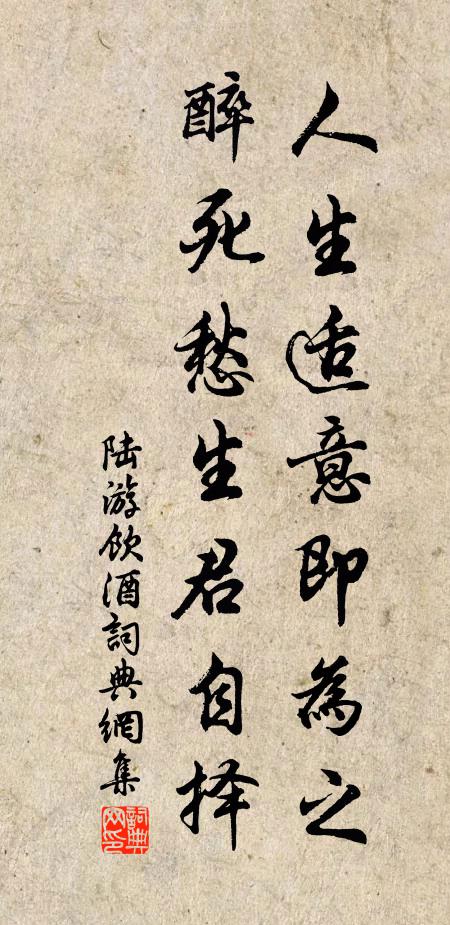 人生适意即為之
醉死愁生君自择
陆游飲酒詞典網集
詞典網印